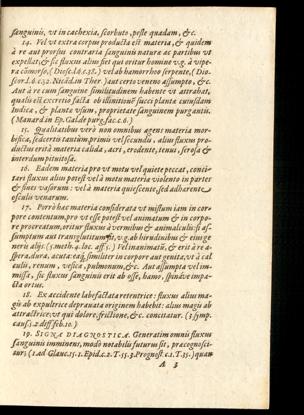 sanguinis, vt in cachexia, scorbuto, peste quadam, & c.
14. Vel vt extra corpus producta est materia, & quidem
à re aut prorsus contraria sanguinis naturæ ac partibus vt
expellat, & sic fluxus alius fiet qui oritur homine v.g. à vipe-
ra cõmorso, (Diosc.l.6.c.38.) vel ab hæmorrhoo serpente, (Dios-
cor. l.6.c.32. Nicãd. in Ther.) aut certo veneno assumpto, & c.
Aut à re cum sanguine similitudinem habente vt attrahat,
qualis est excretio facta ob illitionẽ succi plantæ cuiusdam
Indicæ, & planta vsum, proprietate sanguinem purgantis.
(Manard. in Ep. Gal. de purg. fac. c.6.)
15. Qualitatibus verò non omnibus agens materia mor-
bifica, sed certis tantùm, primis vel secundis. alius fluxus pro-
ductus erit à materia calida, acri, erodente, tenui, serosa &
interdum pituitosa.
16. Eadem materia pro vt motu vel quiete peccat, conci-
tari fluxus alius potest vel à motu materiæ violento in partes
& fines vasorum: vel à materia quiescente, sed adhærente
osculis venarum.
17. Porrò hæc materia considerata vt mistum iam in cor-
pore contentum, pro vt esse potest vel animatum & in corpo-
re procreatum, oritur fluxus à vermibus & animalculis: si as-
sumptum aut transglutitum sit, v.g. ab hirudinibus & eius ge-
neris alijs. (5. meth. 4. loc. aff. 5.) Vel inanimatũ, & erit à re a-
spera, dura, acuta: eaq; similiter in corpore aut genita, vt à cal-
culis, renum, vesicæ, pulmonum, & c. Aut assumpta vel im-
missa, sic fluxus sanguinis erit ab osse, hamo, spinave impa-
cta ortus.
18. Ex accidente labefactata retentrice: fluxus alius ma-
gis ab expultrice depravata originem habebit: alius magis ab
attractrice, vt qui dolore, frictione, & c. concitatur. (3. symp.
caus. 2. diff. feb. 10.)
19. SIGNA DIAGNOSTICA. Generatim omnis fluxus
sanguinis imminens, modò notabilis futurus sit, prægnosci-
tur: (1. ad Glauc. 15. 1. Epid. c. 2. T. 55. 3. Prognost. c. 1. T. 35.) quan
A 3